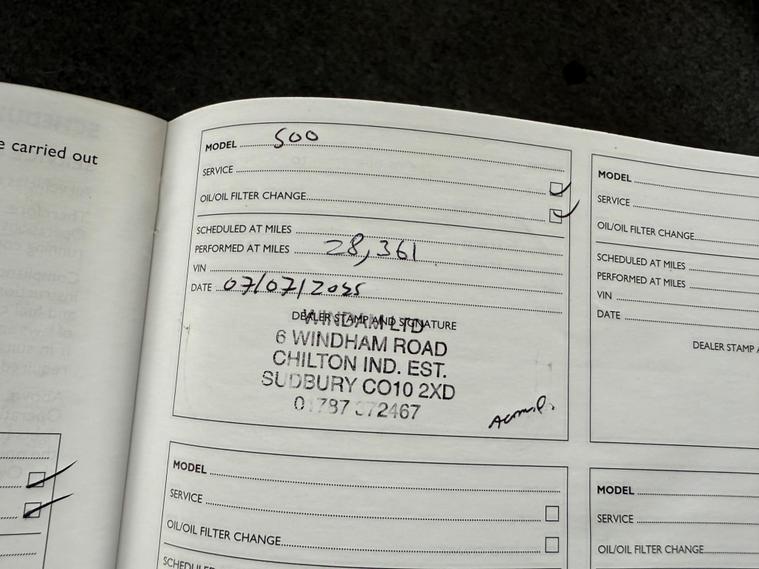 e carried out
MODEL 500
SERVICE
OIL/OIL FILTER CHANGE
SCHEDULED AT MILES
PERFORMED AT MILES 28,361
VIN
DATE 07/07/2025
DEALER STAMP AND SIGNATURE
WINDAM LTD
6 WINDHAM ROAD
CHILTON IND. EST.
SUDBURY CO10 2XD
01787 372467
MODEL
SERVICE
OIL/OIL FILTER CHANGE
SCHEDULED AT MILES
PERFORMED AT MILES
VIN
DATE
DEALER STAMP A
MODEL
SERVICE
OIL/OIL FILTER CHANGE
SCHEDUL
MODEL
SERVICE
OIL/OIL FILTER CHANGE